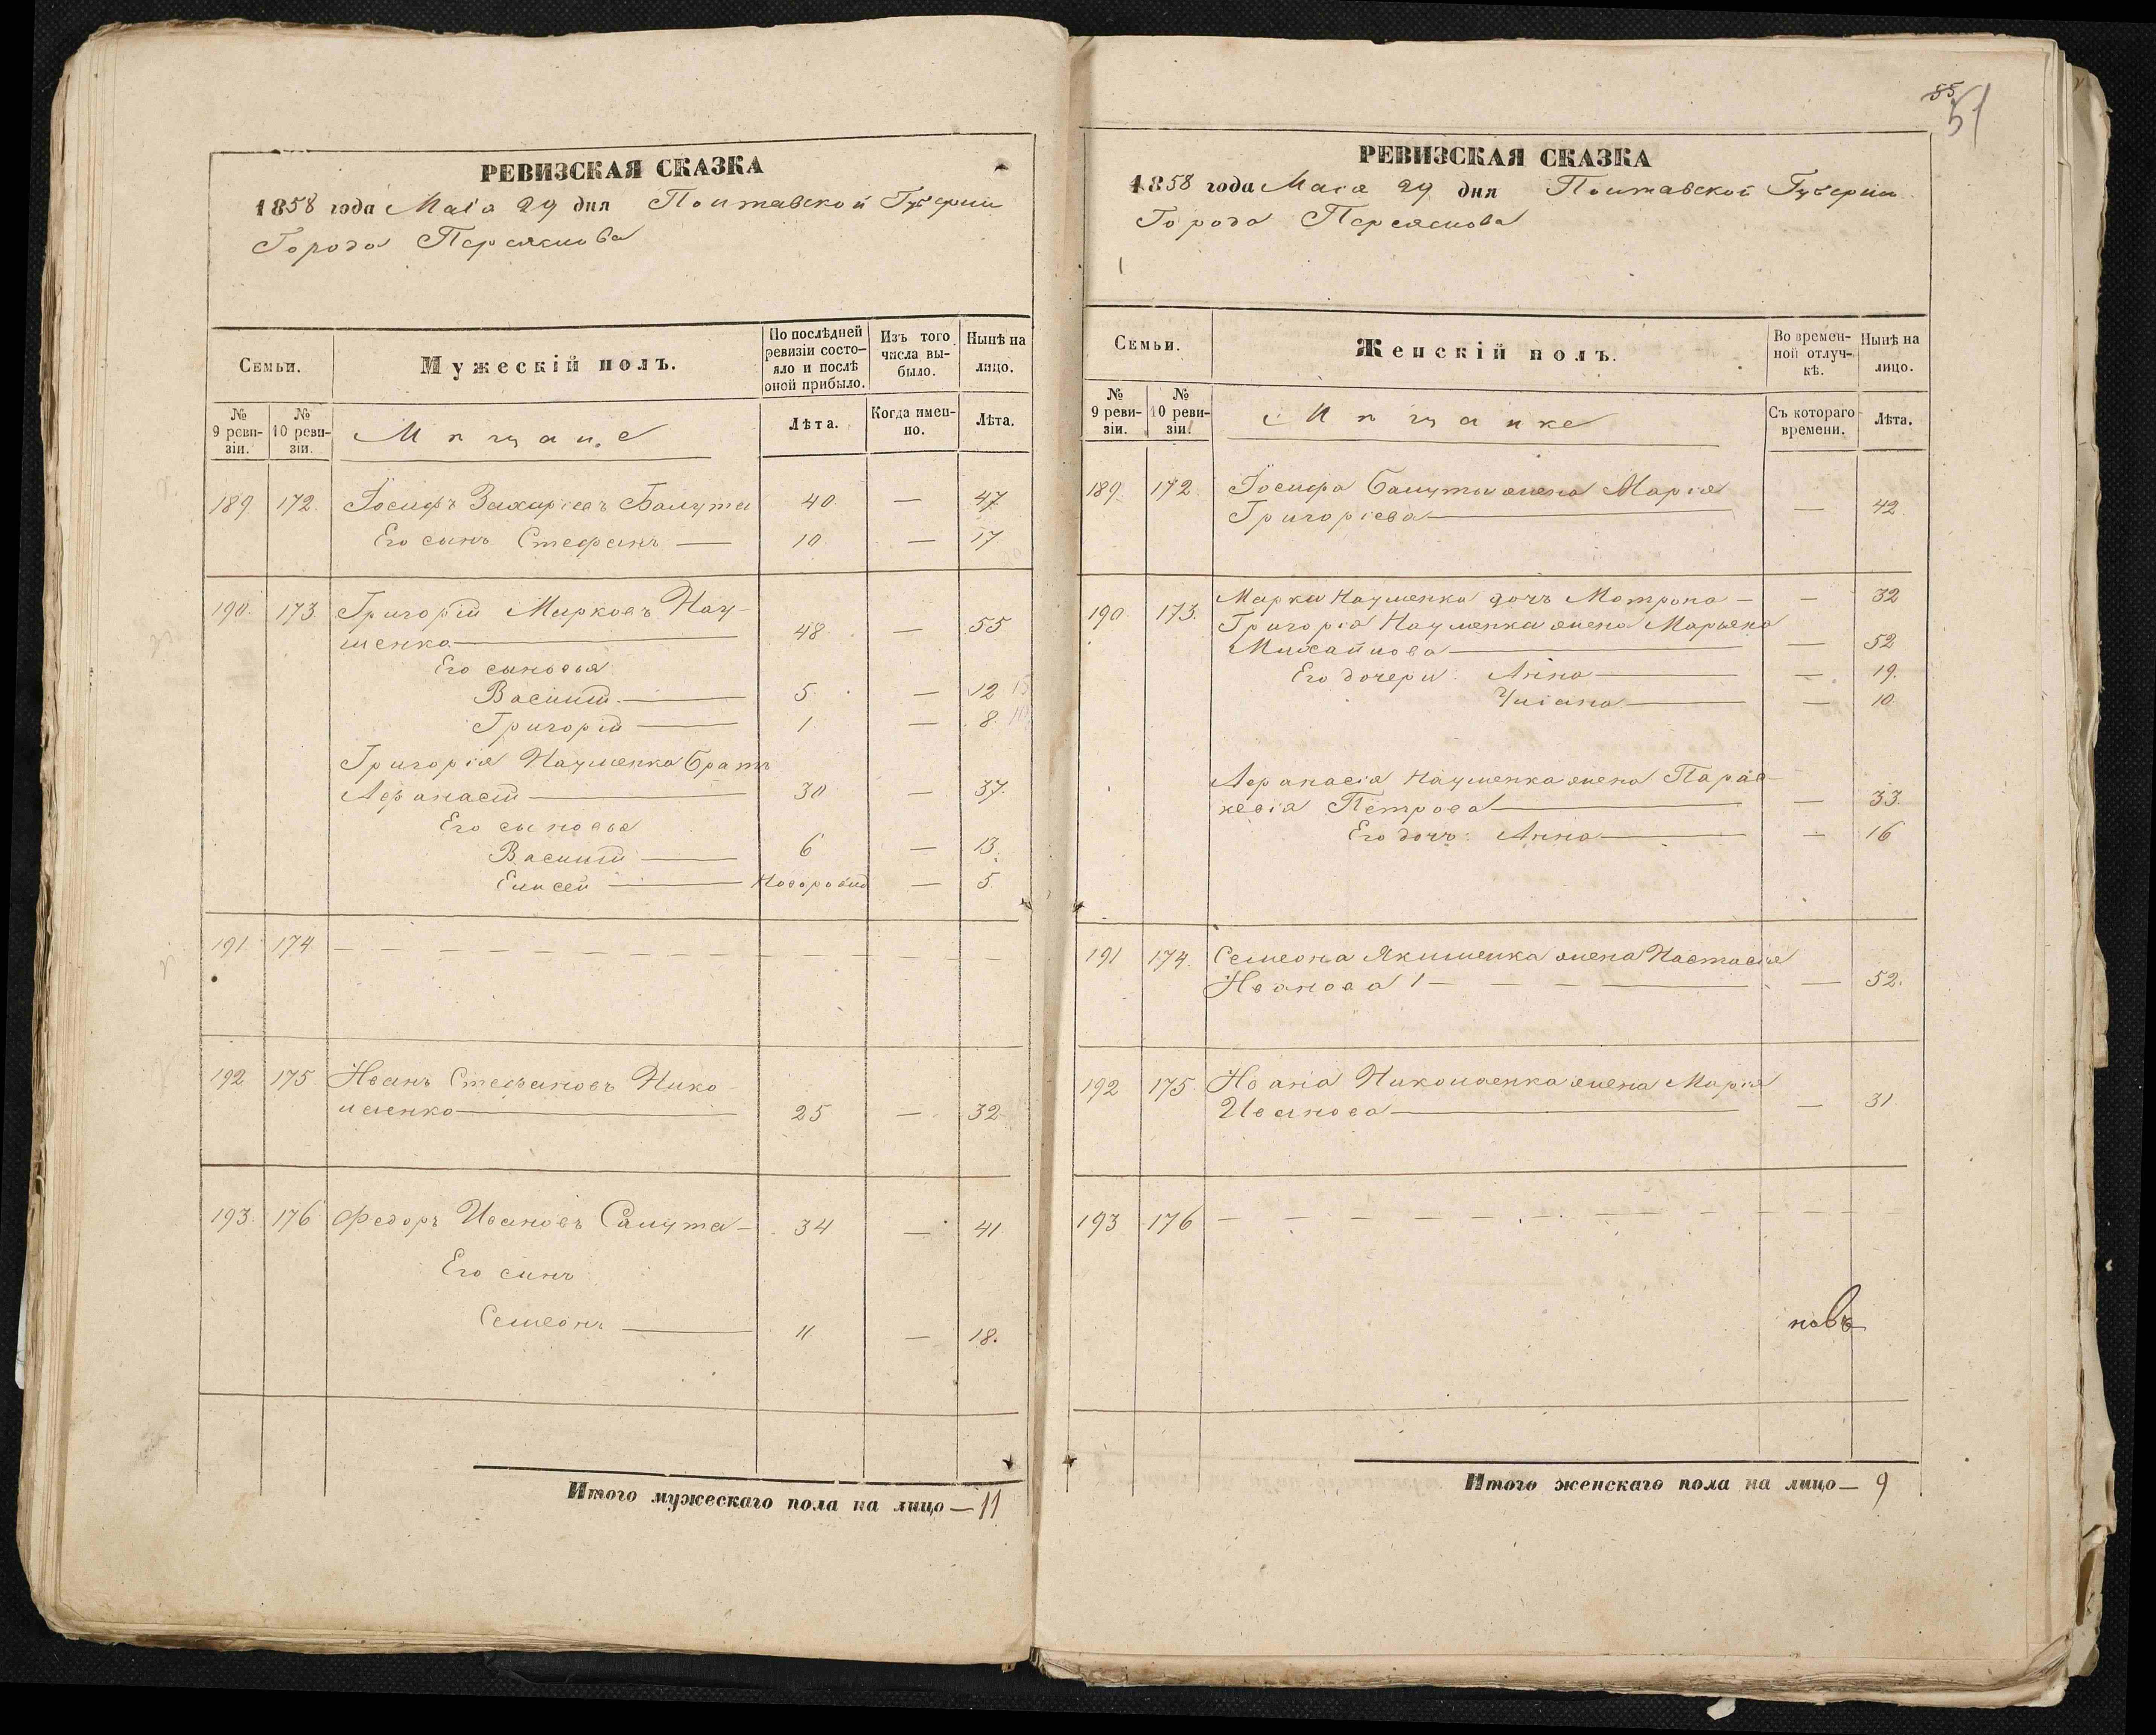 РЕВИЗСКАЯ СКАЗКА
1858 года Маія 29 дня Полтавской Губерніи
Города Переяслова
Семьи.
Мужескій полъ.
По послѣдней ревизіи состо-яло и послѣ оной прибыло.
Изъ того числа вы-было.
Нынѣ на лицо.
№ 9 реви-зіи.
№ 10 реви-зіи.
Мѣщане
Лѣта.
Когда имен-но.
Лѣта.
189. 172. Іосифъ Захаріевъ Балута 40. — 47
Его сынъ Стефанъ — 10 — 17
190. 173. Григорій Марковъ Нау-
менко — 48 — 55
Его сыновья
Василій — 5 — 12
Григорій — 1 — 8.
Григорія Науменка братъ
Афанасій — 30 — 37.
Его сыновья
Василій — 6 — 13.
Елисей — Новорожд — 5.
191. 174. — — — — — — — — — —
192 175 Иванъ Стефановъ Нико-
лаенко — 25 — 32
193. 176 Федоръ Ивановъ Салута — 34 — 41
Его сынъ
Семеонъ — 11 — 18.
Итого мужескаго пола на лицо — 11
85
51
РЕВИЗСКАЯ СКАЗКА
1858 года Маія 29 дня Полтавской Губерніи
Города Переяслова
Семьи.
Женскій полъ.
Во времен-ной отлуч-кѣ.
Нынѣ на лицо.
№ 9 реви-зіи.
№ 10 реви-зіи.
Мѣщанке
Съ котораго времени.
Лѣта.
189. 172. Іосифа Балуты жена Марія
Григоріева — — 42
190 173. Марка Науменка дочь Мотрона — — 32
Григорія Науменка жена Марьяна
Михайлова — — 52
Его дочери: Анна — — 19.
Уліана — — 10.
Афанасія Науменка жена Парас-
кевія Петрова — — 33.
Его дочь: Анна — — 16
191 174. Семеона Якименка жена Настасія
Иванова — — — 52.
192 175. Ивана Николаенка жена Марія
Иванова — — 31.
193 176 — — — — — — — — — —
новъ
Итого женскаго пола на лицо — 9